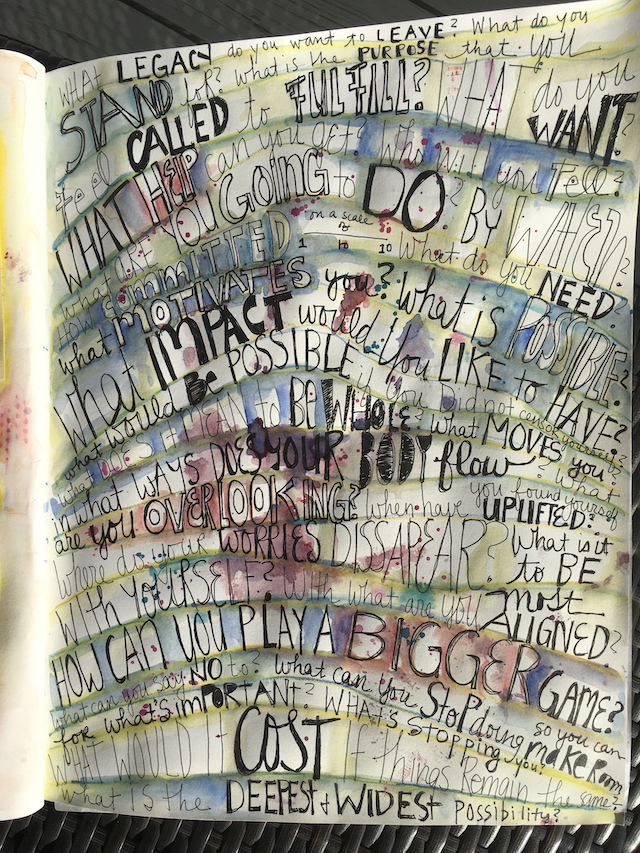 WHAT LEGACY do you want to LEAVE? What do you
STAND for? What is the PURPOSE that you
feel CALLED to FULFILL? WHAT do you WANT?
WHAT HELP can you get? Who will you tell?
what are YOU GOING to DO? BY WHEN?
HOW COMMITTED on a scale of 1 to 10 What do you NEED?
what MOTIVATES you? What is POSSIBLE?
What IMPACT would you LIKE to HAVE?
what would Be POSSIBLE if you did not censor yourself?
What DOES it MEAN to BE WHOLE? what MOVES you?
in what WAYS DOES YOUR BODY flow? What
are you OVERLOOKING? when have you found yourself UPLIFTED?
where do your WORRIES DISSAPEAR? What is it to BE
WITH YOURSELF? With what are you most ALIGNED?
HOW CAN YOU PLAY A BIGGER GAME?
what can you say NO to? What can you STOP doing so you can make ROOM
for what's IMPORTANT? WHAT'S STOPPING you?
WHAT WOULD IT COST if things remain the same?
what is the DEEPEST & WIDEST Possibility?